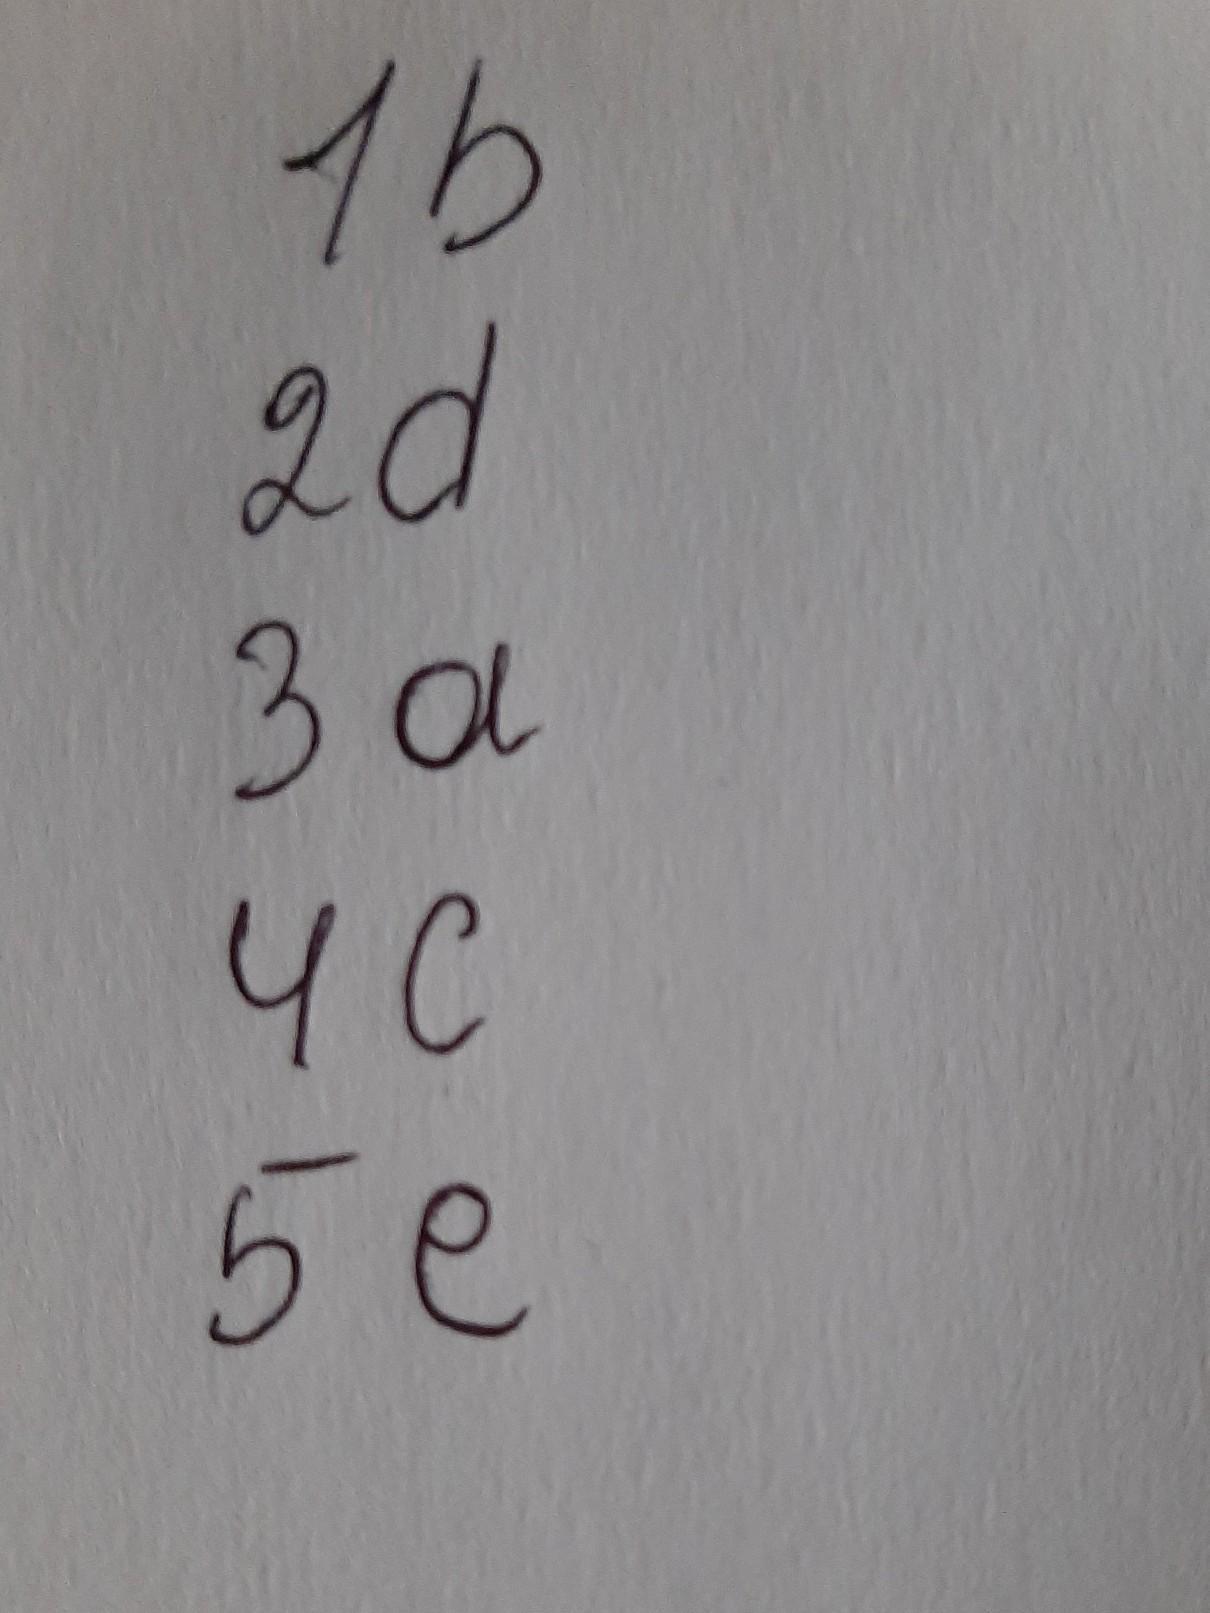 1 b
2 d
3 a
4 c
5 e